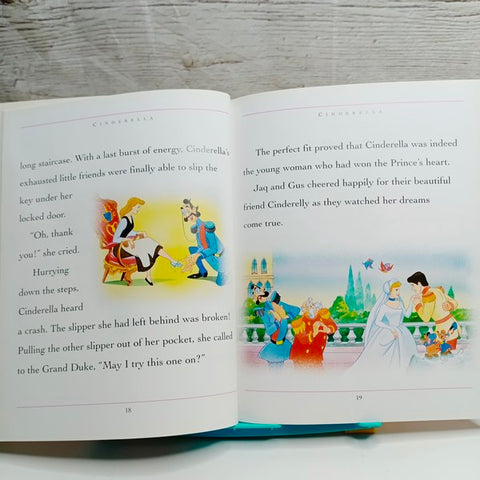 CINDERELLA
long staircase. With a last burst of energy, Cinderella's
exhausted little friends were finally able to slip the
key under her
locked door.
"Oh, thank
you!" she cried.
Hurrying
down the steps,
Cinderella heard
a crash. The slipper she had left behind was broken!
Pulling the other slipper out of her pocket, she called
to the Grand Duke, "May I try this one on?"
18
CINDERELLA
The perfect fit proved that Cinderella was indeed
the young woman who had won the Prince's heart.
Jaq and Gus cheered happily for their beautiful
friend Cinderelly as they watched her dreams
come true.
19